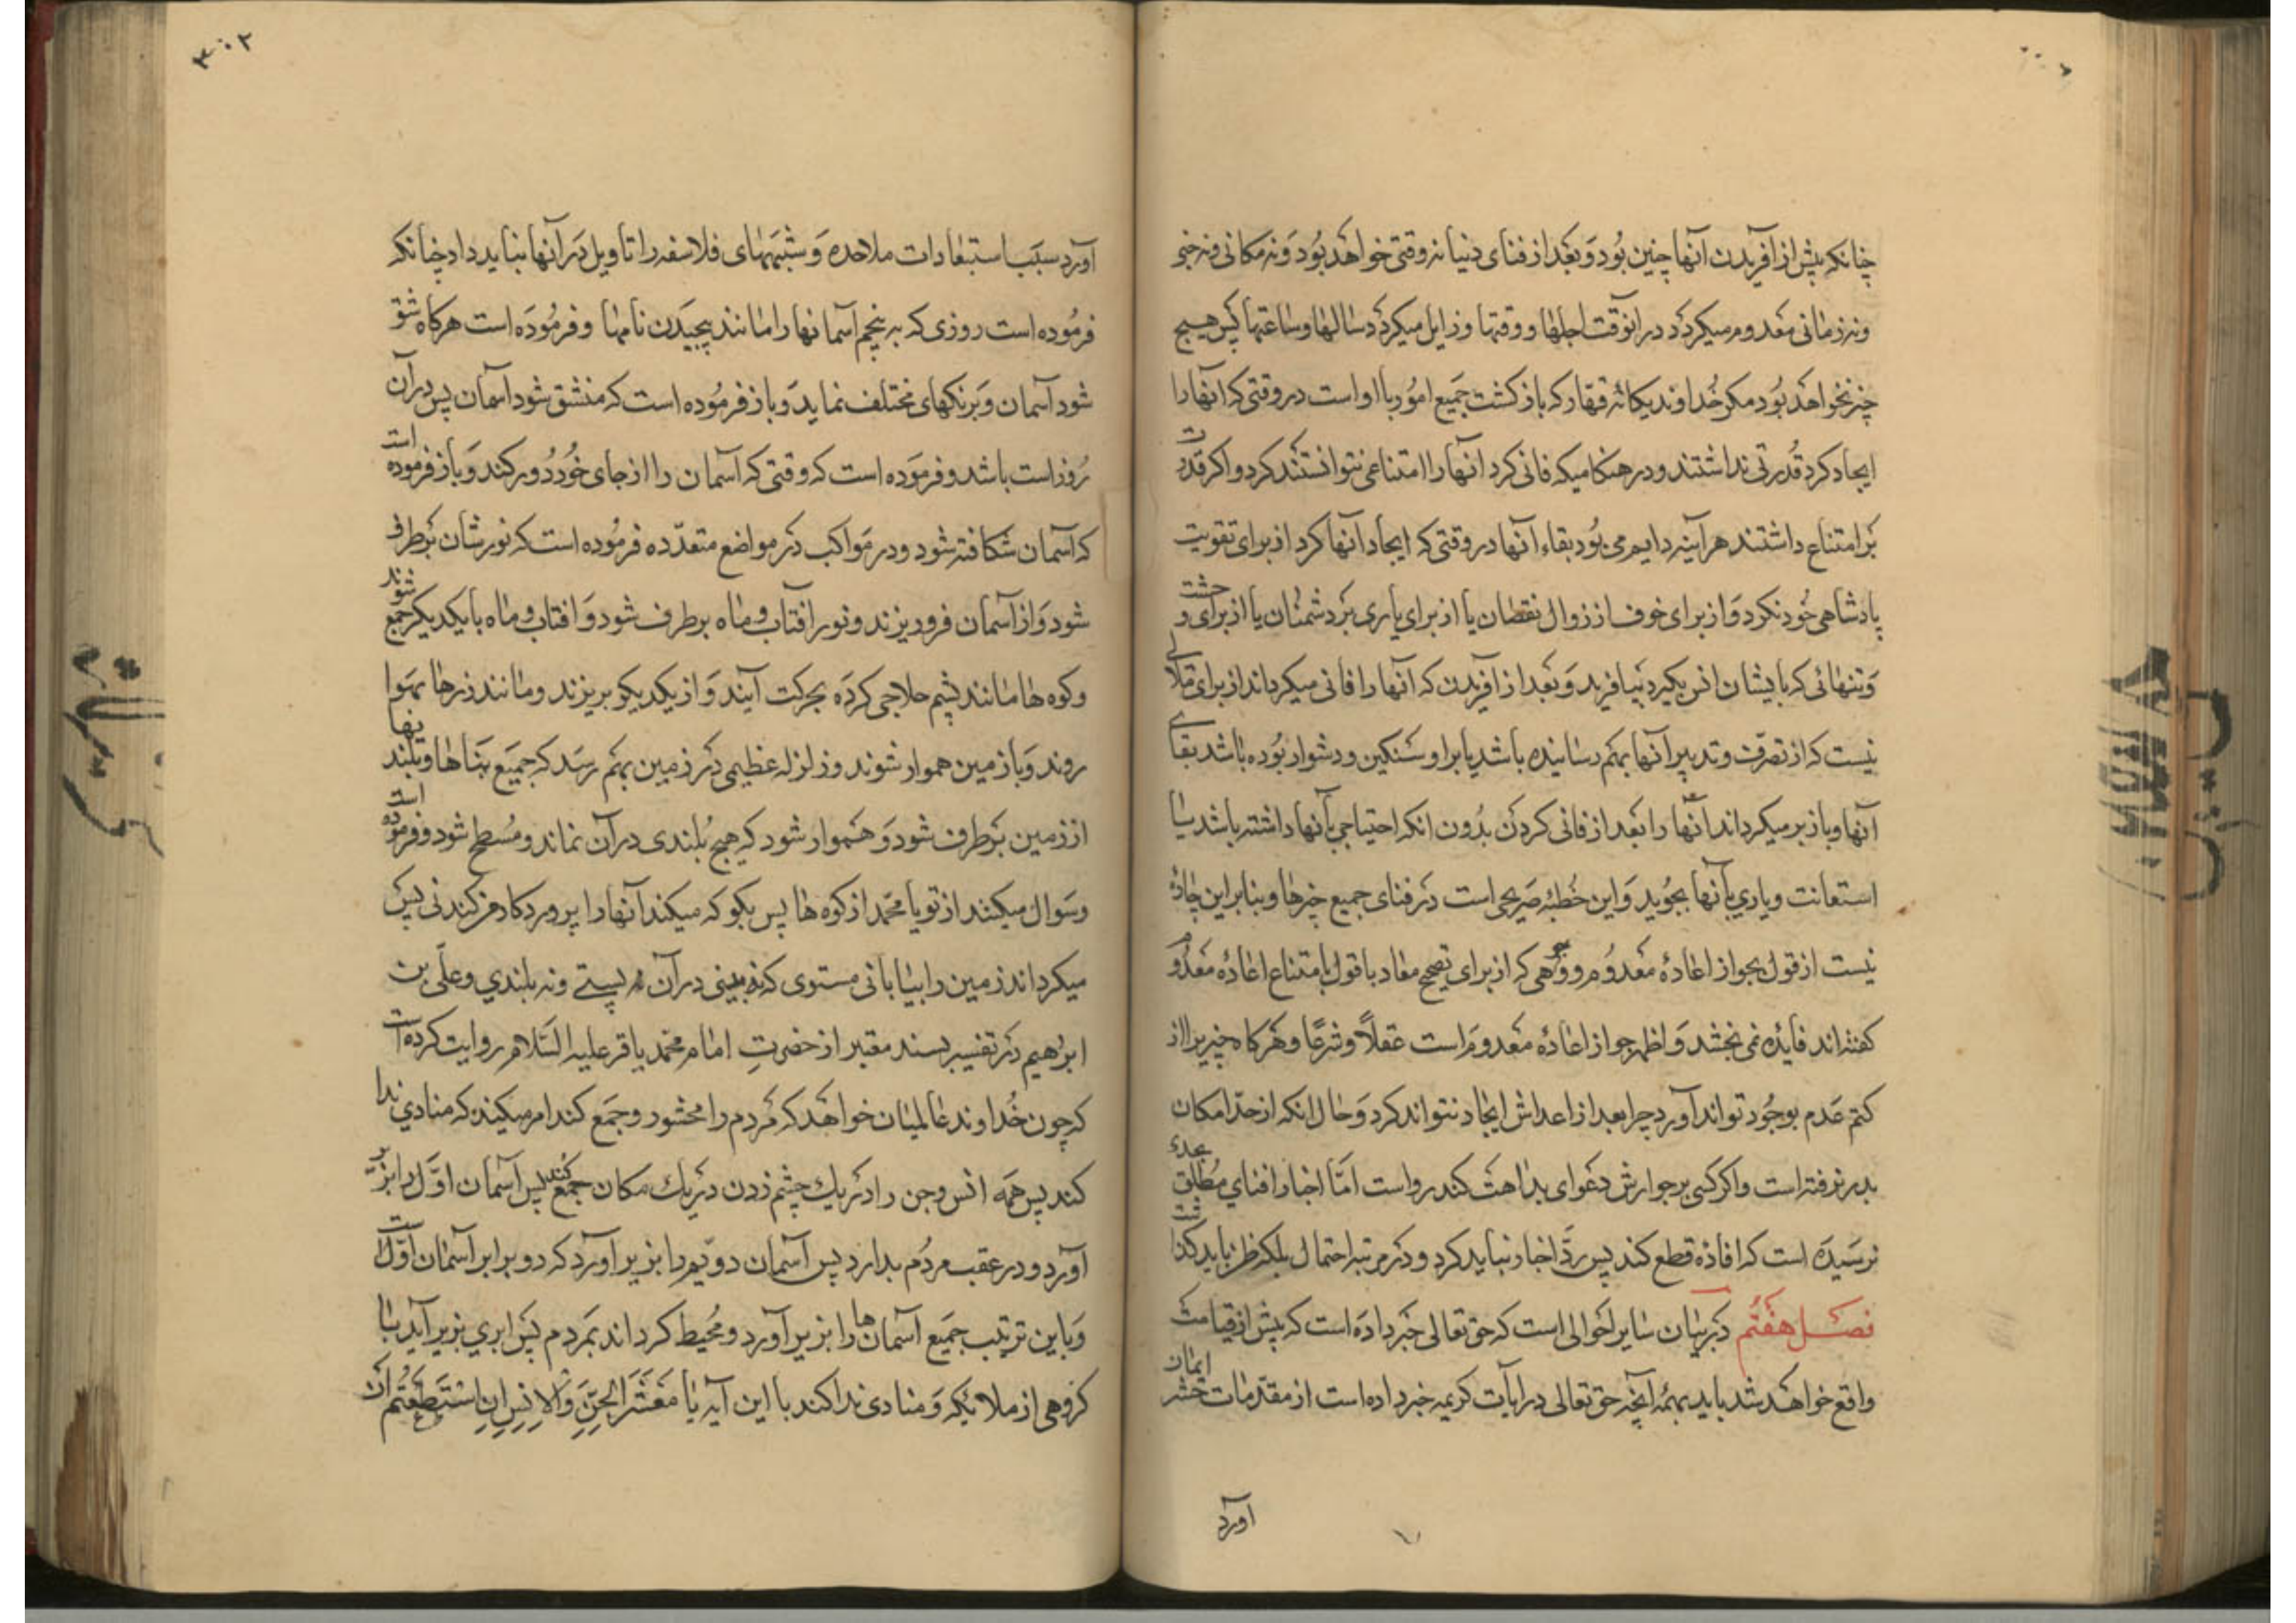 چنانکه پیش از آفریدن آنها چنین بود و بعد از فنای دنیا نه وقتی خواهد بود و نه مکانی و نه حینی
و نه زمانی معدوم میکردد در انوقت اجلها و وقتها و زایل میکردد سالها و ساعتها پس هیچ
چیز نخواهد بود مکر خداوند یکانه قهار که بازکشت جمیع امور با او است در وقتی که آنها را
ایجاد کرد قدرتی نداشتند و در هنکامیکه فانی کرد آنها را امتناعی نتوانستند کرد و اکر قدرت
بر امتناع داشتند هر آینه دایم می بود بقاء آنها در وقتی که ایجاد آنها کرد از برای تقویت
پادشاهی خود نکرد و از برای خوف از زوال نقصان یا از برای یاری بر دشمنان یا از برای وحشت
و تنهائی که با یشان انس بکیرد نیافرید و بعد از آفریدن که آنها را فانی میکرداند از برای ملالی
نیست که از تصرف و تدبیر آنها بهم رسانیده باشد یا بر او سنکین و دشوار بوده باشد بقای
آنها و باز بر میکرداند آنها را بعد از فانی کردن بدون انکه احتیاجی بآنها داشته باشد یا
استعانت و یاری بآنها بجوید و این خطبه صریحی است در فنای جمیع چیزها و بنابراین چارۀ
نیست از قول بجواز اعادۀ معدوم و وجوهی که از برای تصحیح معاد با قول بامتناع اعادۀ معدوم
کفته‌اند فایده نمی بخشد و اظهر جواز اعادۀ معدوم است عقلاً و شرعًا و هرکاه چیزیرا از
کتم عدم بوجود تواند آورد چرا بعد از اعدامش ایجاد نتواند کرد و حال انکه از حد امکان
بدر نرفته است و اکر کسی بر جوازش دعوای بداهت کند رواست امّا اخبار فنای مطلق بحدی
نرسیده است که افاده قطع کند پس ردّ اخبار نباید کرد و در مرتبه احتمال بلکه ظن باید کذاشت
فصل هفتم در بیان سایر احوالی است که حق تعالی خبر داده است که پیش از قیامت
واقع خواهد شد باید بهمه آنچه حق تعالی در ایات کریمه خبر داده است از مقدّمات حشر ایمان
آورد
۳۰۲
آورد سبب استبعادات ملاحده و شبههای فلاسفه را تاویل در آنها نباید داد چنانکه
فرموده است روزی که بپیچم آسمانها را مانند پیچیدن نامها و فرموده است هرکاه شق
شود آسمان و برنکهای مختلف نماید و باز فرموده است که منشق شود آسمان پس در آن
روز است باشد و فرموده است که وقتی که آسمان را از جای خود دور کنند و باز فرموده است
که آسمان شکافته شود و در کواکب در مواضع متعدّده فرموده است که نورشان برطرف
شود و از آسمان فرو ریزند و نور افتاب و ماه برطرف شود و افتاب و ماه با یکدیکر جمع شوند
و کوه ها مانند پشم حلاجی کرده بحرکت آیند و از یکدیکر بریزند و مانند ذرها بهوا
روند و با زمین هموار شوند و زلزله عظیمی در زمین بهم رسد که جمیع بناها و بلندیها
از زمین برطرف شود و هموار شود که هیچ بلندی در آن نماند و مسطح شود و فرموده است
و سوال میکنند از تو یا محمد از کوه ها پس بکو که میکند آنها را پروردکار من کندنی پس
میکرداند زمین را بیابانی مستوی که نه بینی در آن نه پستی و نه بلندی و علی بن
ابرهیم در تفسیر بسند معتبر از حضرت امام محمد باقر علیه السلام روایت کرده است
که چون خداوند عالمیان خواهد که مردم را محشور و جمع کند امر میکند که منادی ندا
کند پس همه انس و جن را در یك چشم زدن در یك مکان جمع کند پس آسمان اوّل را بزیر
آورد و در عقب مردم بدارد پس آسمان دویّم را بزیر آورد که دو برابر آسمان اوّلست
و باین ترتیب جمیع آسمان ها را بزیر آورد و محیط کرداند بمردم پس ابری بزیر آید با
کروهی از ملائکه و منادی ندا کند با این آیه یا مَعْشَرَ الجِنِّ وَالاِنسِ اِنِ اسْتَطَعْتُم اَن